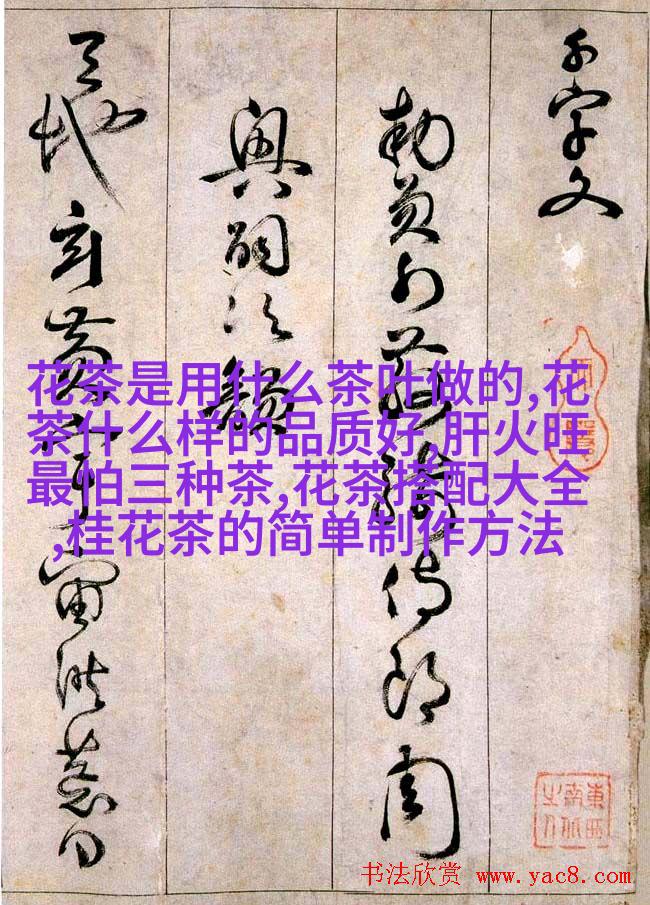 千字文
勅員外散騎侍郎周
興嗣次韻
天地玄黃宇宙洪荒日
花茶是用什么茶叶做的,花
茶什么样的品质好,肝火旺
最怕三种茶,花茶搭配大全
,桂花茶的简单制作方法
東西南北之人
书法欣赏 www.yac8.com